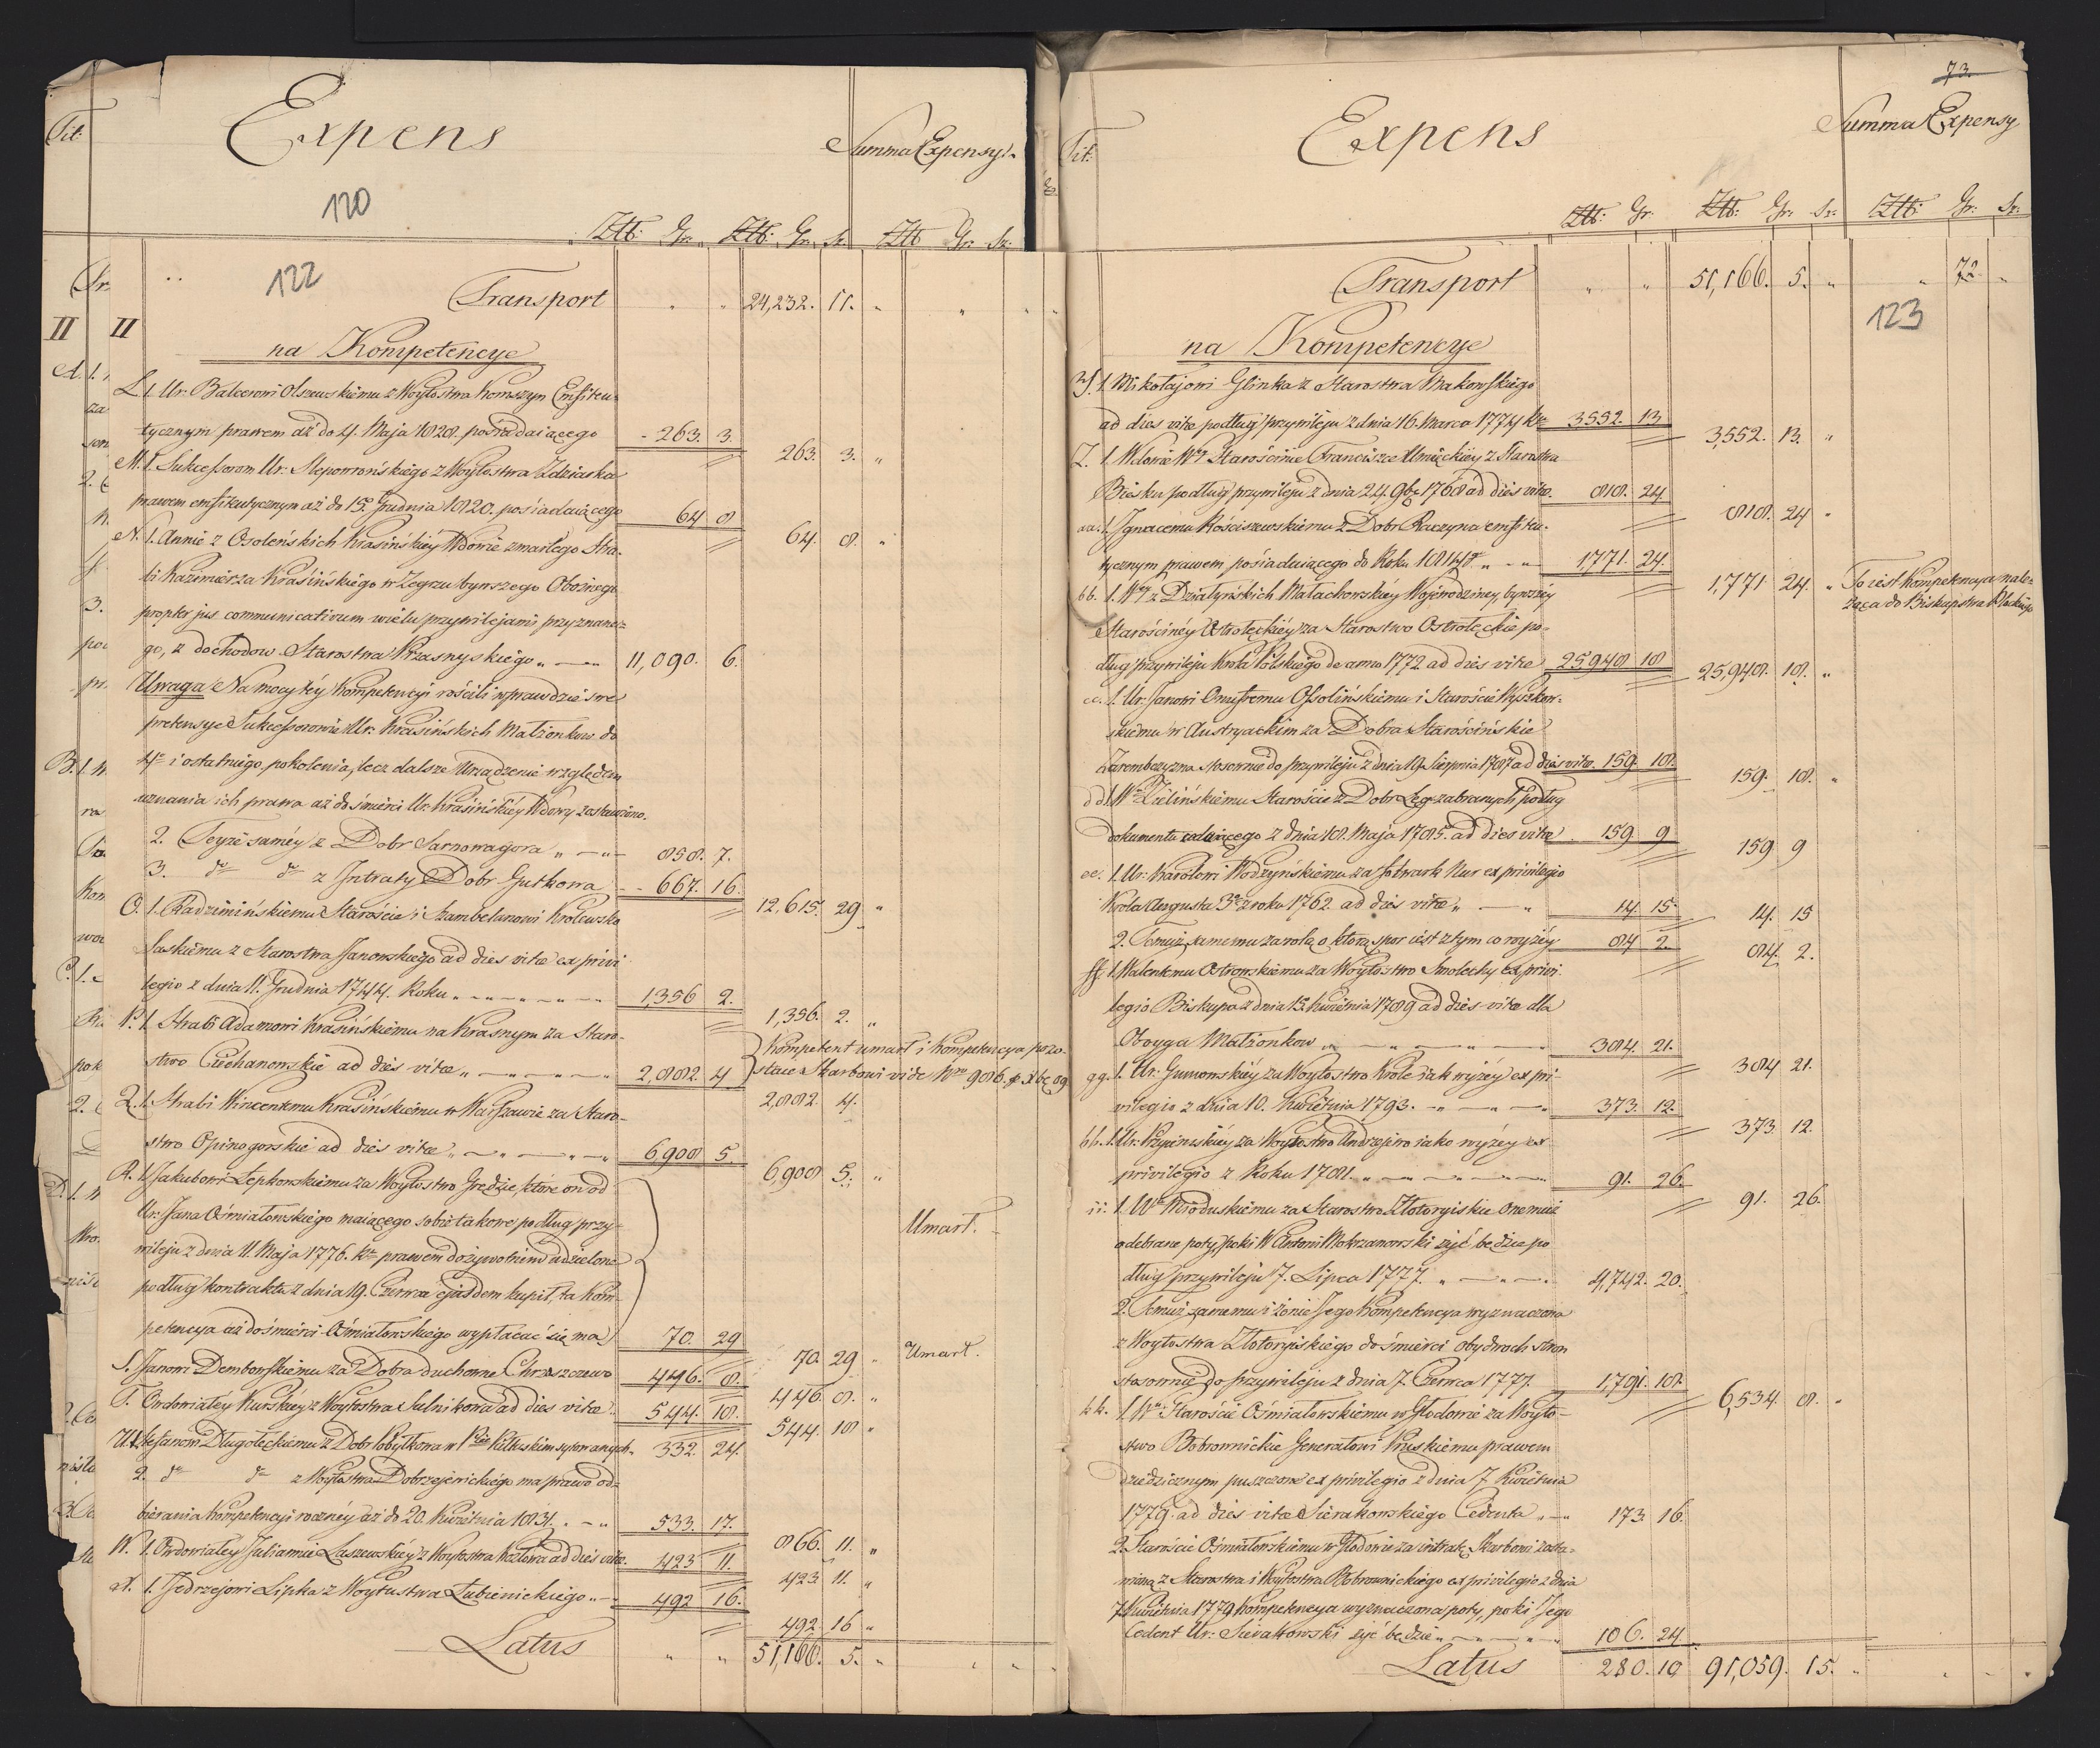 Tit:
Expens
Summa Expensy
120
Ztt: Gr. Ztt: Gr. Sz. Ztt Gr. Sz.
122
Transport " " 24,232. 11. "
II II
na Kompetencye
L. 1. Ur. Balcerowi Olszewskiemu z Woytostwa Emfiteu-
tycznym prawem aż do 4. Maja 1828. posiadaiącego 263. 3.
263. 3. "
M. 1. Sukcessorom Ur: Steporrońskiego z Woytostwa
prawem emfiteutycznym aż do 15. Grudnia 1820. posiadaiącego 64 8
64. 8. "
N. 1. Annie z Osoleńskich Krasińskiéy Wdowie zmarłego Hra-
bi Kazimierza Krasińskiego w Zegrzu bywszego Oboźnego
propter jus communicativum wielu przywilejami przyznane-
go, z dochodow Starostwa Przasnyskiego " — 11,090. 6.
Uwaga Na mocy téy Kompetencyi rościli wprawdzie swe
pretensye Sukcessorowie Ur: Krasińskich Małżonkow do
4go i ostatniego pokolenia, lecz dalsze Urządzenie względem
uznania ich prawa aż do śmierci Ur. Krasińskiéy Wdowy zostawiono.
2. Teyże saméy z Dobr Sarnowagora " — 858. 7.
3. do do z Intraty Dobr Gutkowa — 667. 16.
12,615. 29 "
O. 1. Radzimińskiemu Staroście i Szambelanowi Krolewsko
Saskiemu z Starostwa Janowskiego ad dies vitæ ex privi
legio z dnia 11. Grudnia 1744. Roku " — 1,356 2.
1,356. 2. "
P. 1. Hrabi Adamowi Krasińskiemu na Krasnym za Staro-
stwo Ciechanowskie ad dies vitæ " — 2,882. 4
Kompetent umarł i Kompetencya pozo-
staie Skarbowi vide Nro 986.
2,882. 4.
Q. 1. Hrabi Wincentemu Krasińskiemu w Warszawie za Staro-
stwo Opinogorskie ad dies vitæ " — 6908 5.
6,908 5. "
R. 1. Jakubowi Łepkowskiemu za Woytostwo Grędzie, które on od
Ur: Jana Ośmiałowskiego maiącego sobie takowe podług przy-
wileju z dnia 11. Maja 1776. prawem dożywotniem udzielone
podług kontraktu z dnia 19. Czerwca ejusdem kupił, ta Kom-
petencya aż do śmierci Ośmiałowskiego wypłacać się ma 70. 29
Umarł.
70 29 " Umarł.
S. Janowi Dembowskiemu za Dobra duchowne Chrzszczewo 446. 8.
446. 8. "
T. Owdowiałey Kurskiéy z Woytostwa Sulnikowa ad dies vitæ 544. 18.
544. 18 "
U. 1. Stefanowi Długołęckiemu z Dobr Pobyłkowa w Pcie Pułtuskim sytowanych 332. 24.
2. do do z Woytostwa Dobrzejewickiégo ma prawo od-
bierania Kompetencyi roczney aż do 20. Kwietnia 1831. — 533. 17.
866. 11. "
W. 1. Owdowiałey Julianie Laszewskiéy z Woytostwa Kozłowa ad dies vitæ 423 11.
423 11. "
X. 1. Jędrzejowi Lipka z Woytustwa Łubienickiego " — 492 16.
492. 16 "
Latus " " 51,166. 5. "
73.
Tit:
Expens
Summa Expensy
Ztt: Gr. Ztt: Gr: Sz: Ztt: Gr: Sz.
Transport " " 51,166. 5. " " 72. "
123
na Kompetencye
Y. 1. Mikołajowi Glinka z Starostwa Makowskiego
ad dies vitæ podług przywileju z dnia 16. Marca 1774 3552. 13
3,552. 13. "
Z. 1. Wdowie Wey Starościnie Franciszce z Starostwa
podług przywileju z dnia 24. 9br 1768 ad dies vitæ. 818. 24
818. 24 "
aa. 1. Ignacemu Kościszewskiemu z Dobr Raczyna emfiteu-
tycznym prawem posiadaiącego do Roku " — 1,771. 24.
1,771 24. " To iest Kompetencya nale-
żąca do Biskupstwa Płockiego
bb. 1. Wey z Działyńskich Małachowskiéy Woiewodziney, bywszéy
Starościnéy Ostrołęckiéy za Starostwo Ostrołęckie po-
dług przywileju Krola Polskiego de anno 1772 ad dies vitæ 25948 18
25,948. 18. "
cc. 1. Ur. Janowi Onufremu Ossolińskiemu i Staroście
skiemu w Austryackim za Dobra Starościńskie
Zarembczyzna stosownie do przywileju z dnia 19. Sierpnia 1787 ad dies vitæ 159 18.
159. 18. "
dd. 1. Wu Zielińskiemu Staroście z Dobr Łęg zabranych podług
dokumentu z dnia 18. Maja 1785. ad dies vitæ 159 9
159 9
ee. 1. Ur: Karolowi Wodzyńskiemu za folwark Nur ex privilegio
Krola Augusta 3o z roku 1762 ad dies vitæ " — 14 15
14. 15
2. Temuż samemu za rolą, o którą spor iest z tym co wyżéy 84 2.
84. 2.
ff. 1. Walentemu Ostrowskiemu za Woytostwo Smolechy ex privi-
legio Biskupa z dnia 13. Kwietnia 1789 ad dies vitæ dla
Oboyga Małżonkow " — 384. 21.
384 21.
gg. 1. Ur: Gumowskiéy za Woytostwo Krole iak wyżéy ex pri-
vilegio z dnia 10. Kwietnia 1793. — 373. 12.
373. 12.
hh. 1. Ur: za Woytostwo Andrzejewo iako wyżéy ex
privilegio z Roku 1781. " — 91. 26.
91. 26.
ii: 1. Wu Mioduskiemu za Starostwo Złotoryiskie onemuż
odebrane poty, poki W Antoni Mokrzanowski żyć będzie po
dług przywileju 7. Lipca 1777. " — 4,742. 20.
2. Temuż samemu i żonie Jego Kompetencya wyznaczona
z Woytostwa Złotoryiskiego do śmierci obydwoch stron
stosownie do przywileju z dnia 7. Czerwca 1777. 1,791. 18.
6,534. 8. "
kk. 1. Wu Staroście Ośmiałowskiemu w Głodowie za Woyto-
stwo Bobrownickie Generałowi Pruskiemu prawem
dziedzicznym puszczone ex privilegio z dnia 7. Kwietnia
1779. ad dies vitæ Sierakowskiego Cedenta " — 173 16.
2. Staroście Ośmiałowskiemu w Głodowie za intratę Skarbowi zosta-
wioną z Starostwa i Woytostwa Bobrownickiego ex privilegio z dnia
7. Kwietnia 1779 Kompetencya wyznaczona poty, poki Jego
Cedent Ur: Sierakowski żyć będzie " — 106. 24
Latus 280. 10 91,059. 15. "